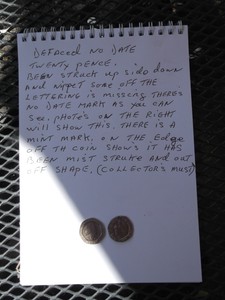 DEFACED NO DATE
TWENTY PENCE.
BEEN STRUCK UP SIDE DOWN
AND NIPPET SOME OFF THE
LETTERING IS MISSING THERES
NO DATE MARK AS YOU CAN
SEE. PHOTO'S ON THE RIGHT
WILL SHOW THIS. THERE IS A
MINT MARK. ON THE EDGE
OFF TH COIN SHOWS IT HAS
BEEN MIST STRUKE AND OUT
OFF SHAPE. (COLLECTORS MUST)